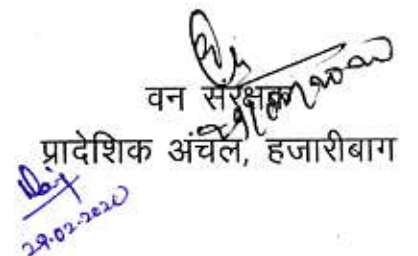 वन संरक्षक
प्रादेशिक अंचल, हजारीबाग
29-02-2020